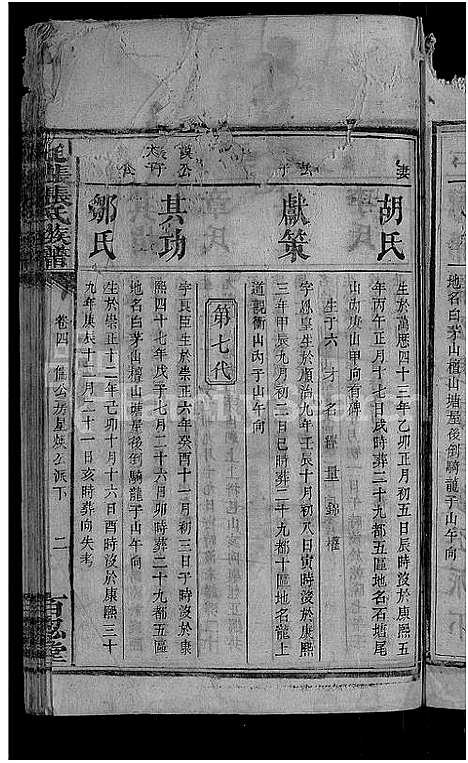 地名白茅山檀山塘屋後倒騎龍子山午向
胡氏
生於萬厯四十三年乙卯正月初五日辰時沒於康熙五
年丙午正月十七日戌時葬二十九都五區地名石塘尾
山內艮山甲向有碑
生子六
獻策
字
生於順治九年壬辰十月初八日寅時沒於康熙
三年甲辰九月初三日巳時葬二十九都十區地名龍上
道觀衡山丙子山午向
第七代
其功
字良臣生於崇正六年癸酉十一月初三日子時沒於康
熙四十七年戊子七月二十六日卯時葬二十九都五區
地名白茅山檀山塘屋後倒騎龍子山午向
鄒氏
生於崇正十二年己卯十月十六日酉時沒於康熙三十
九年庚辰十二月二十一日亥時葬向失考
張氏族譜
卷四
二
百忍堂